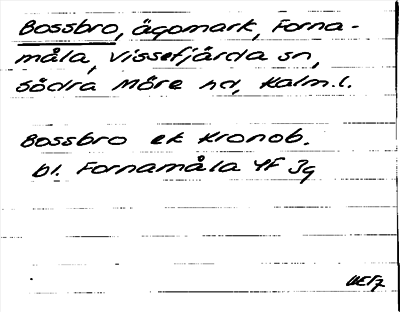 Bossbro, ägomark, Forna-
måla, Vissefjärda sn,
Södra Möre hd, Kalm.l.
Bossbro ek Kronob.
bl. Fornamåla 4F 3g